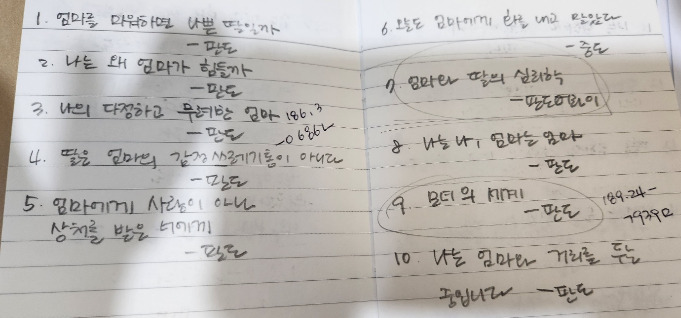 1. 엄마를 미워하면 나쁜 딸일까
- 판도
2. 나는 왜 엄마가 힘들까
- 판도
3. 나의 다정하고 무례한 엄마 186.3
- 판도
4. 딸은 엄마의 감정 쓰레기통이 아니다
- 판도
5. 엄마에게 사랑이 아닌
상처를 받은 너에게
- 판도
6. 오늘도 엄마에게 화를 내고 말았다
- 중도
7. 엄마와 딸의 심리학
- 판도
8. 나는 나, 엄마는 엄마
- 판도
9. 모녀의 세계
- 판도 189.24-
10. 나는 엄마와 거리를 두는
중입니다 - 판도